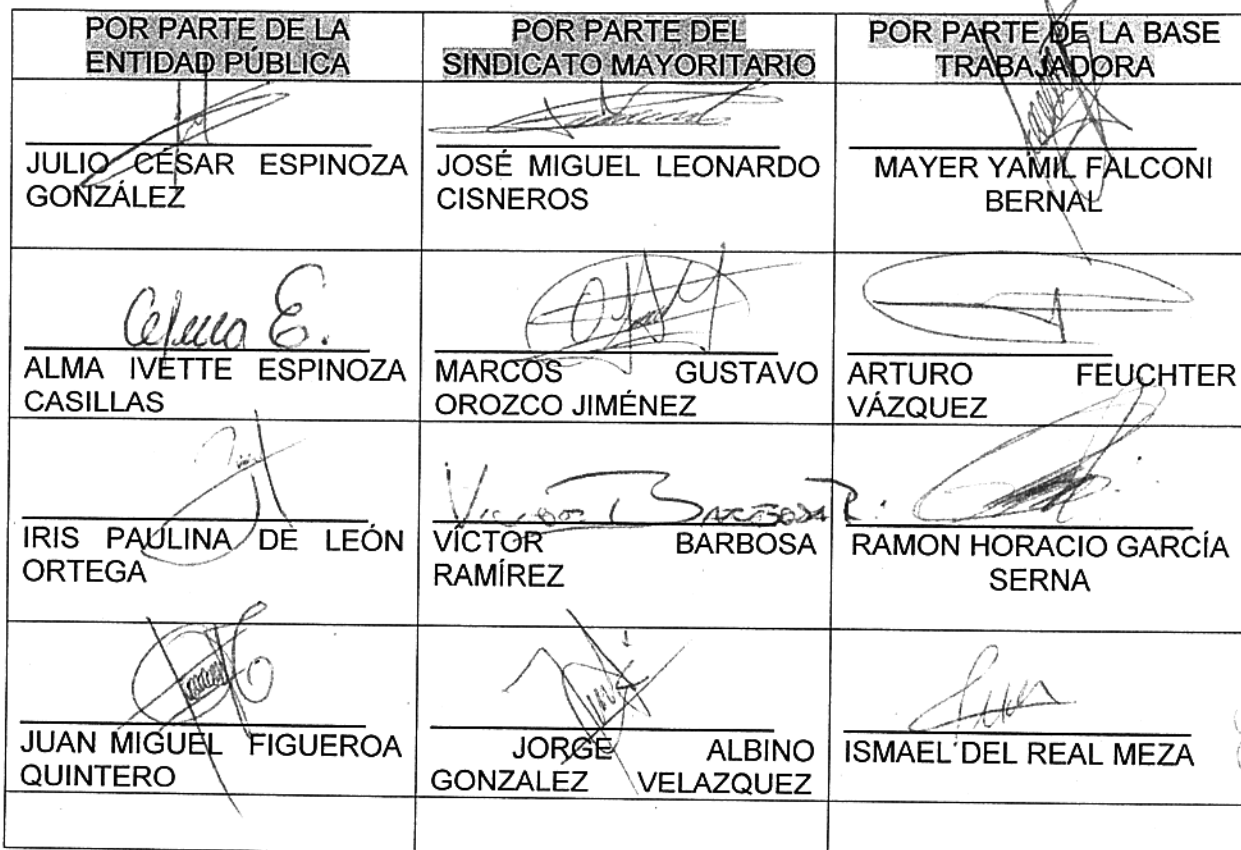 POR PARTE DE LA
ENTIDAD PÚBLICA
POR PARTE DEL
SINDICATO MAYORITARIO
POR PARTE DE LA BASE
TRABAJADORA
JULIO CÉSAR ESPINOZA
GONZÁLEZ
JOSÉ MIGUEL LEONARDO
CISNEROS
MAYER YAMIL FALCONI
BERNAL
E.
ALMA IVETTE ESPINOZA
CASILLAS
MARCOS GUSTAVO
OROZCO JIMÉNEZ
ARTURO FEUCHTER
VÁZQUEZ
IRIS PAULINA DE LEÓN
ORTEGA
Victor Barbosa R.
VÍCTOR BARBOSA
RAMÍREZ
RAMON HORACIO GARCÍA
SERNA
JUAN MIGUEL FIGUEROA
QUINTERO
JORGE ALBINO
GONZALEZ VELAZQUEZ
ISMAEL DEL REAL MEZA